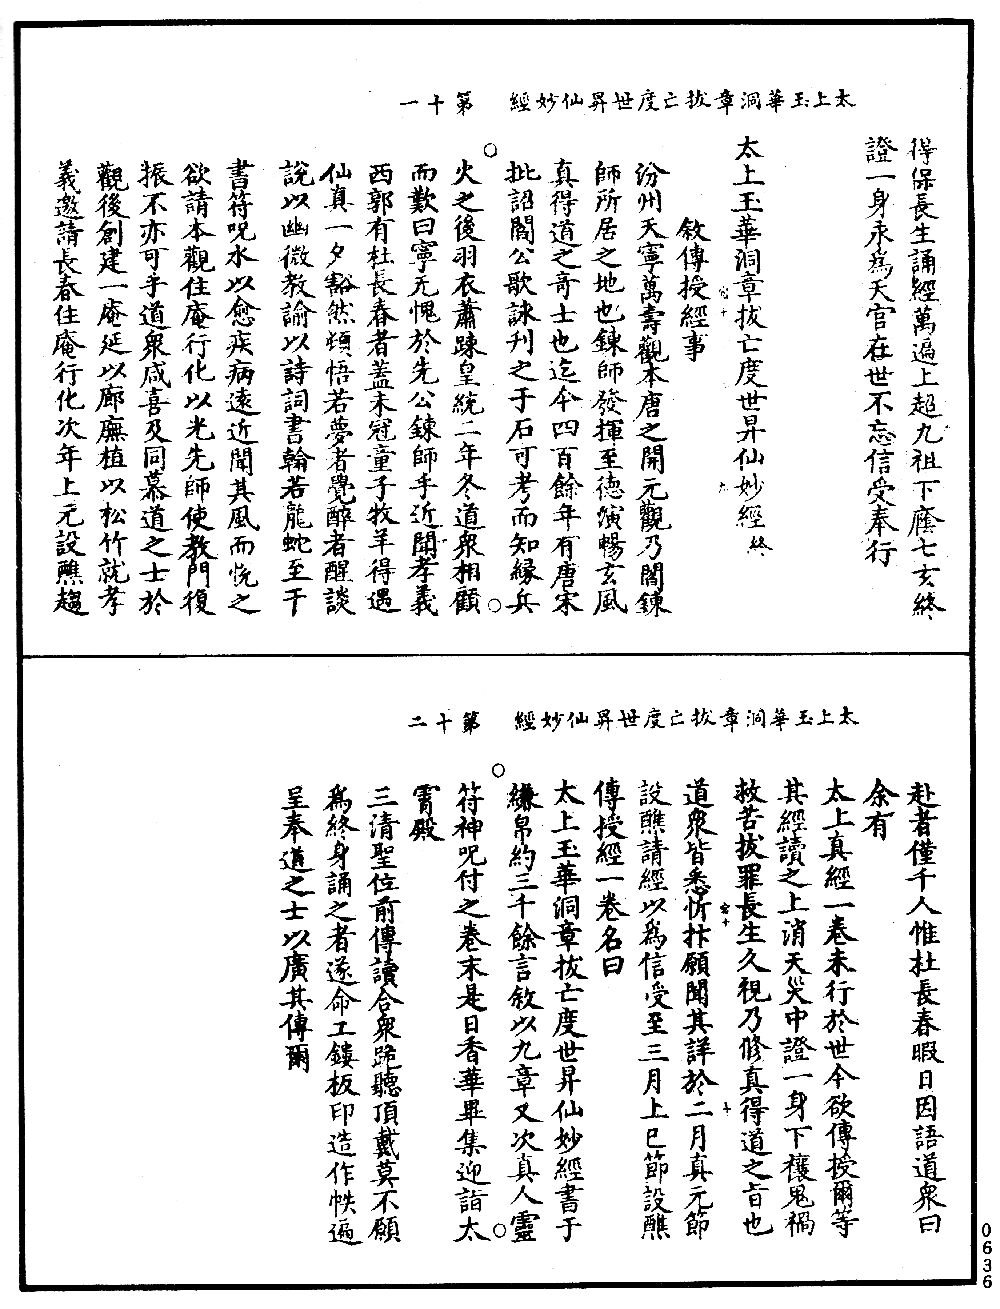 太上玉華洞章拔亡度世昇仙妙經　第十一
得保長生誦經萬遍上超九祖下廕七玄終
證一身永為天官在世不忘信受奉行
太上玉華洞章拔亡度世昇仙妙經終
敘傳授經事
汾州天寧萬壽觀本唐之開元觀乃閻鍊
師所居之地也鍊師發揮至德演暢玄風
真得道之奇士也迄今四百餘年有唐宋
批詔閻公歌詠刋之于石可考而知緣兵
火之後羽衣蕭踈皇統二年冬道衆相顧
而歎曰寧无愧於先公鍊師乎近聞孝義
西郭有杜長春者蓋未冠童子牧羊得遇
仙真一夕豁然頓悟若夢者覺醉者醒談
說以幽微教諭以詩詞書翰若龍蛇至于
書符呪水以愈疾病遠近聞其風而悅之
欲請本觀住庵行化以光先師使教門復
振不亦可乎道衆咸喜及同慕道之士於
觀後創建一庵延以廊廡植以松竹就孝
義邀請長春住庵行化次年上元設醮趨
太上玉華洞章拔亡度世昇仙妙經　第十二
赴者僅千人惟杜長春暇日因語道衆曰
余有
太上真經一卷未行於世今欲傳授爾等
其經讀之上消天災中證一身下禳鬼禍
救苦拔罪長生久視乃修真得道之旨也
道衆皆悉忻抃願聞其詳於二月真元節
設醮請經以為信受至三月上巳節設醮
傳授經一卷名曰
太上玉華洞章拔亡度世昇仙妙經書于
縑帛約三千餘言敘以九章又次真人靈
符神呪付之卷末是日香華畢集迎詣太
霄殿
三清聖位前傳讀合衆跪聽頂戴莫不願
為終身誦之者遂命工鏤板印造作帙遍
呈奉道之士以廣其傳爾
0636